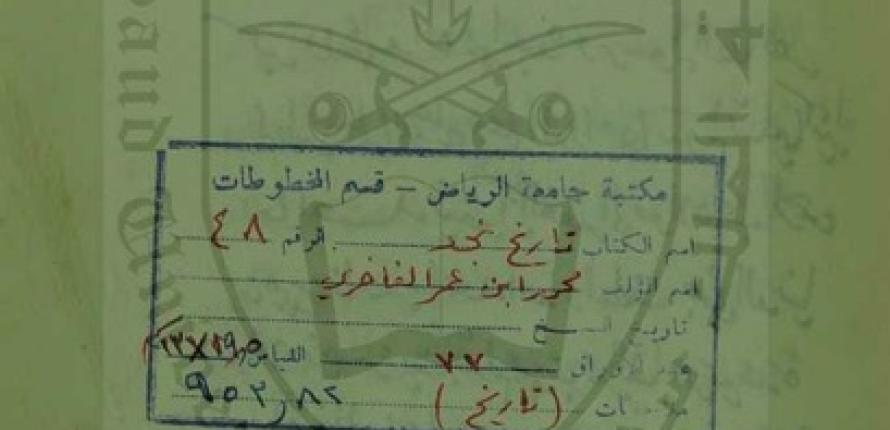 مكتبة جامعة الرياض - قسم المخطوطات
اسم الكتاب تاريخ نجد الرقم ٤٨
اسم المؤلف محمد ابن عمر الفاخري
تاريخ النسخ
عدد الأوراق ٧٧ القياس
(تاريخ) ٩٥٣٫٨٢